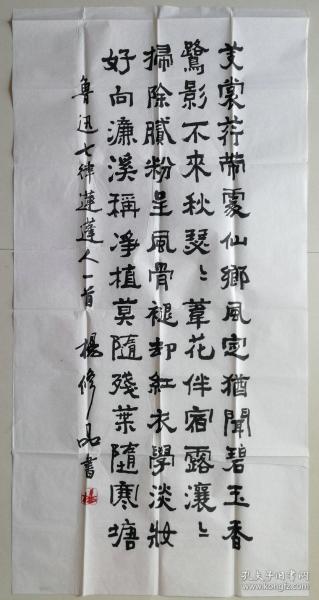 芰裳荇帶處仙鄉風定猶聞碧玉香
鷺影不來秋瑟〻葦花伴宿露瀼〻
掃除膩粉呈風骨褪却紅衣學淡妝
好向濂溪稱净植莫隨殘葉隨寒塘
魯迅七律蓮蓬人一首 楊修品書
孔夫子旧书网